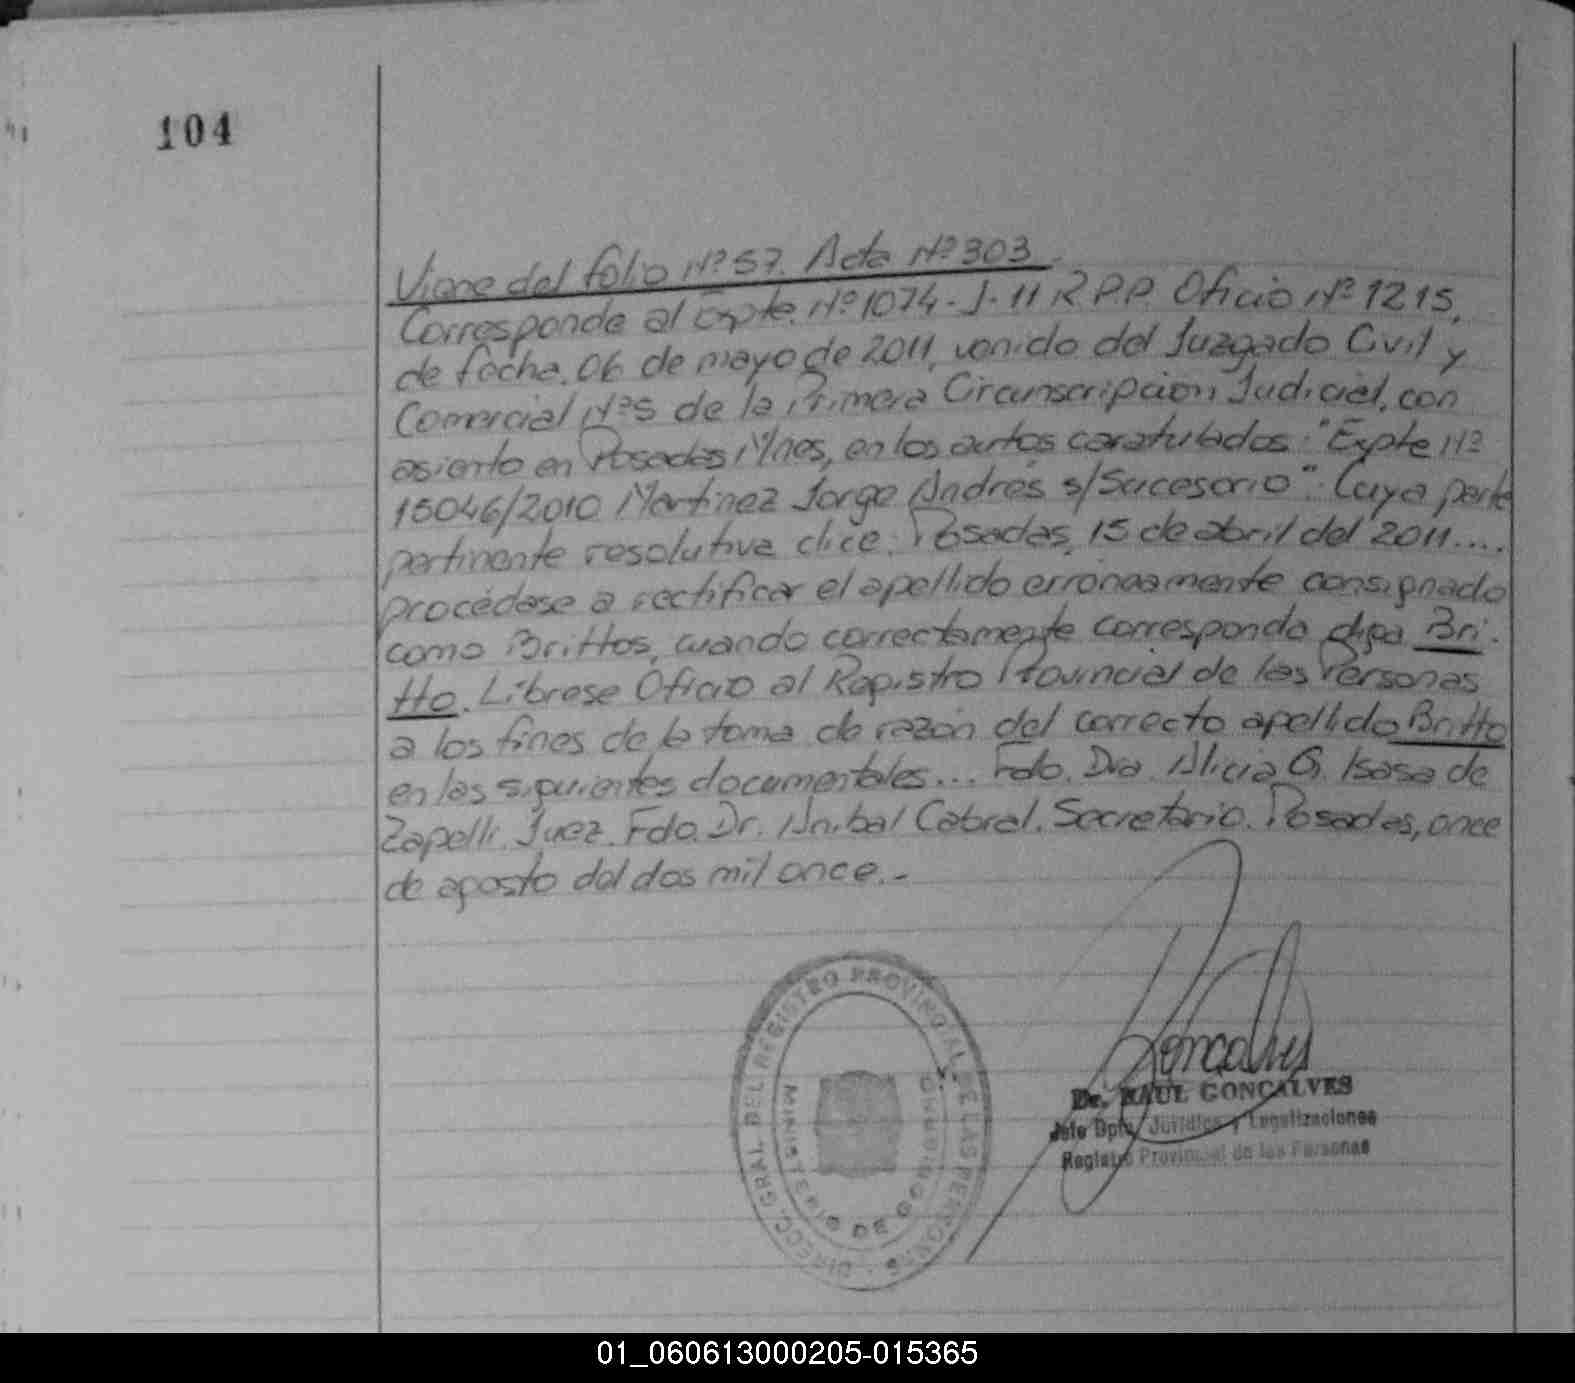 104
Viene del folio Nº 57. Acta Nº 303.
Corresponde al Expte. Nº 1074-J-11 R.P.P. Oficio Nº 1215,
de fecha, 06 de mayo de 2011, venido del Juzgado Civil y
Comercial Nº 5 de la Primera Circunscripción Judicial, con
asiento en Posadas Mnes, en los autos caratulados: "Expte Nº
15046/2010 Martinez Jorge Andrés s/Sucesorio". Cuya parte
pertinente resolutiva dice: Posadas, 15 de abril del 2011....
procédase a rectificar el apellido erróneamente consignado
como Brittos, cuando correctamente corresponde diga Bri-
tto. Líbrese Oficio al Registro Provincial de las Personas
a los fines de la toma de razón del correcto apellido Britto
en las siguientes documentales... Fdo. Dra. Alicia G. Isasa de
Zapelli. Juez. Fdo. Dr. Anibal Cabral. Secretario. Posadas, once
de agosto del dos mil once.-
DIRECC. GRAL. DEL REGISTRO PROVINCIAL DE LAS PERSONAS
MINISTERIO DE GOBIERNO
Goncalves
Dr. RAUL GONCALVES
Jefe Dpto. Jurídico y Legalizaciones
Registro Provincial de las Personas
01_060613000205-015365